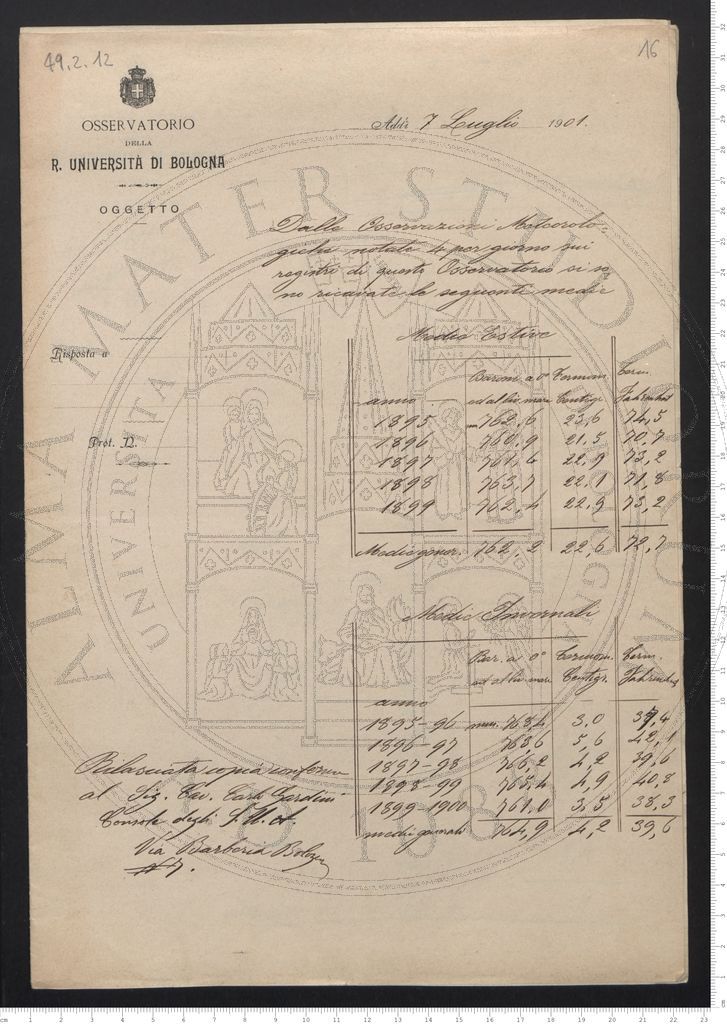 49.2.12
16
OSSERVATORIO
DELLA
R. UNIVERSITÀ DI BOLOGNA
OGGETTO
Addì 7 Luglio 1901.
Dalle Osservazioni Meteorolo-
giche notate 4 per giorno sui
registri di questo Osservatorio si so
no ricavate le seguenti medie
Risposta a
Prot. N.
Medie Estive
anno Barom. a 0° ad al liv. mare Termom. Centigr. Term. Fahrenheit
1895 mm 762,6 23,6 74,5
1896 760,9 21,5 70,7
1897 761,6 22,9 73,2
1898 763,7 22,1 71,8
1899 762,4 22,9 73,2
Medie gener. 762,2 22,6 72,7
Medie Invernali
anno Bar. a 0° ad al liv. mare Termom. Centigr. Term. Fahrenheit
1895-96 mm. 768,4 3,0 37,4
1896-97 763,6 5,6 42,1
1897-98 766,2 4,2 39,6
1898-99 765,4 4,9 40,8
1899-1900 761,0 3,5 38,3
medie generali 764,9 4,2 39,6
Rilasciata copia conforme
al Sig. Cav. Carlo Gardini
Console degli S. U. A.
Via Barberia Bologna
N 7.
ALMA MATER STUDIORUM
UNIVERSITA
A.D. 1088